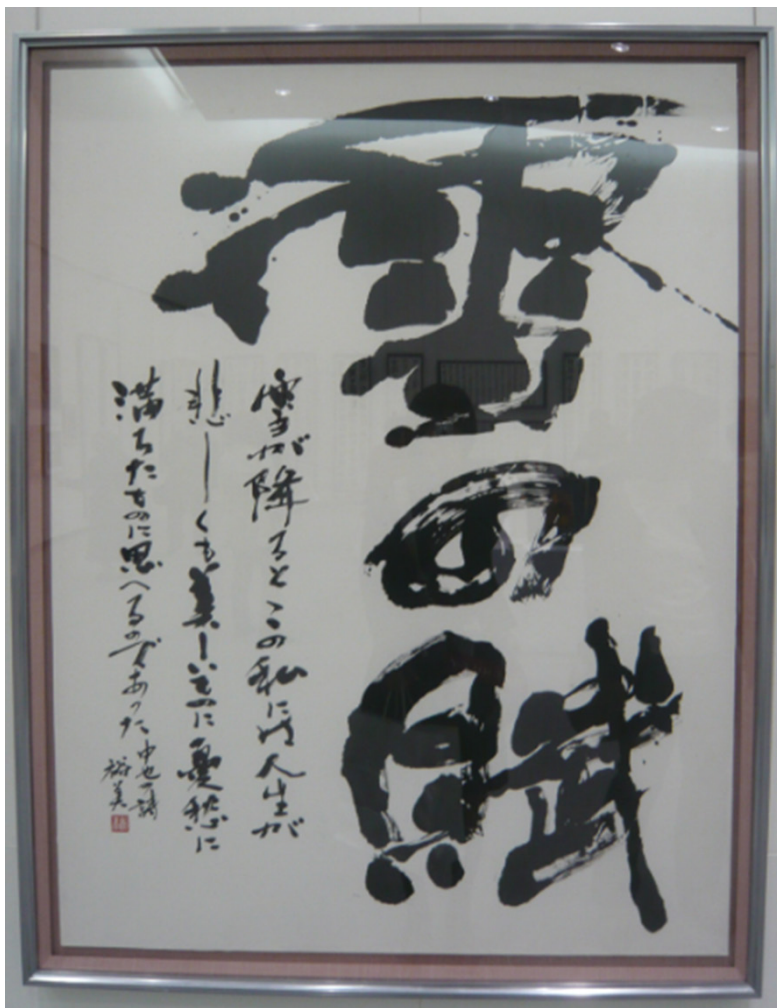 雪の賦
雪が降るとこの私には人生が
悲しくも美しいものに憂愁に
満ちたものに思へるのであった
中也の詩
裕美